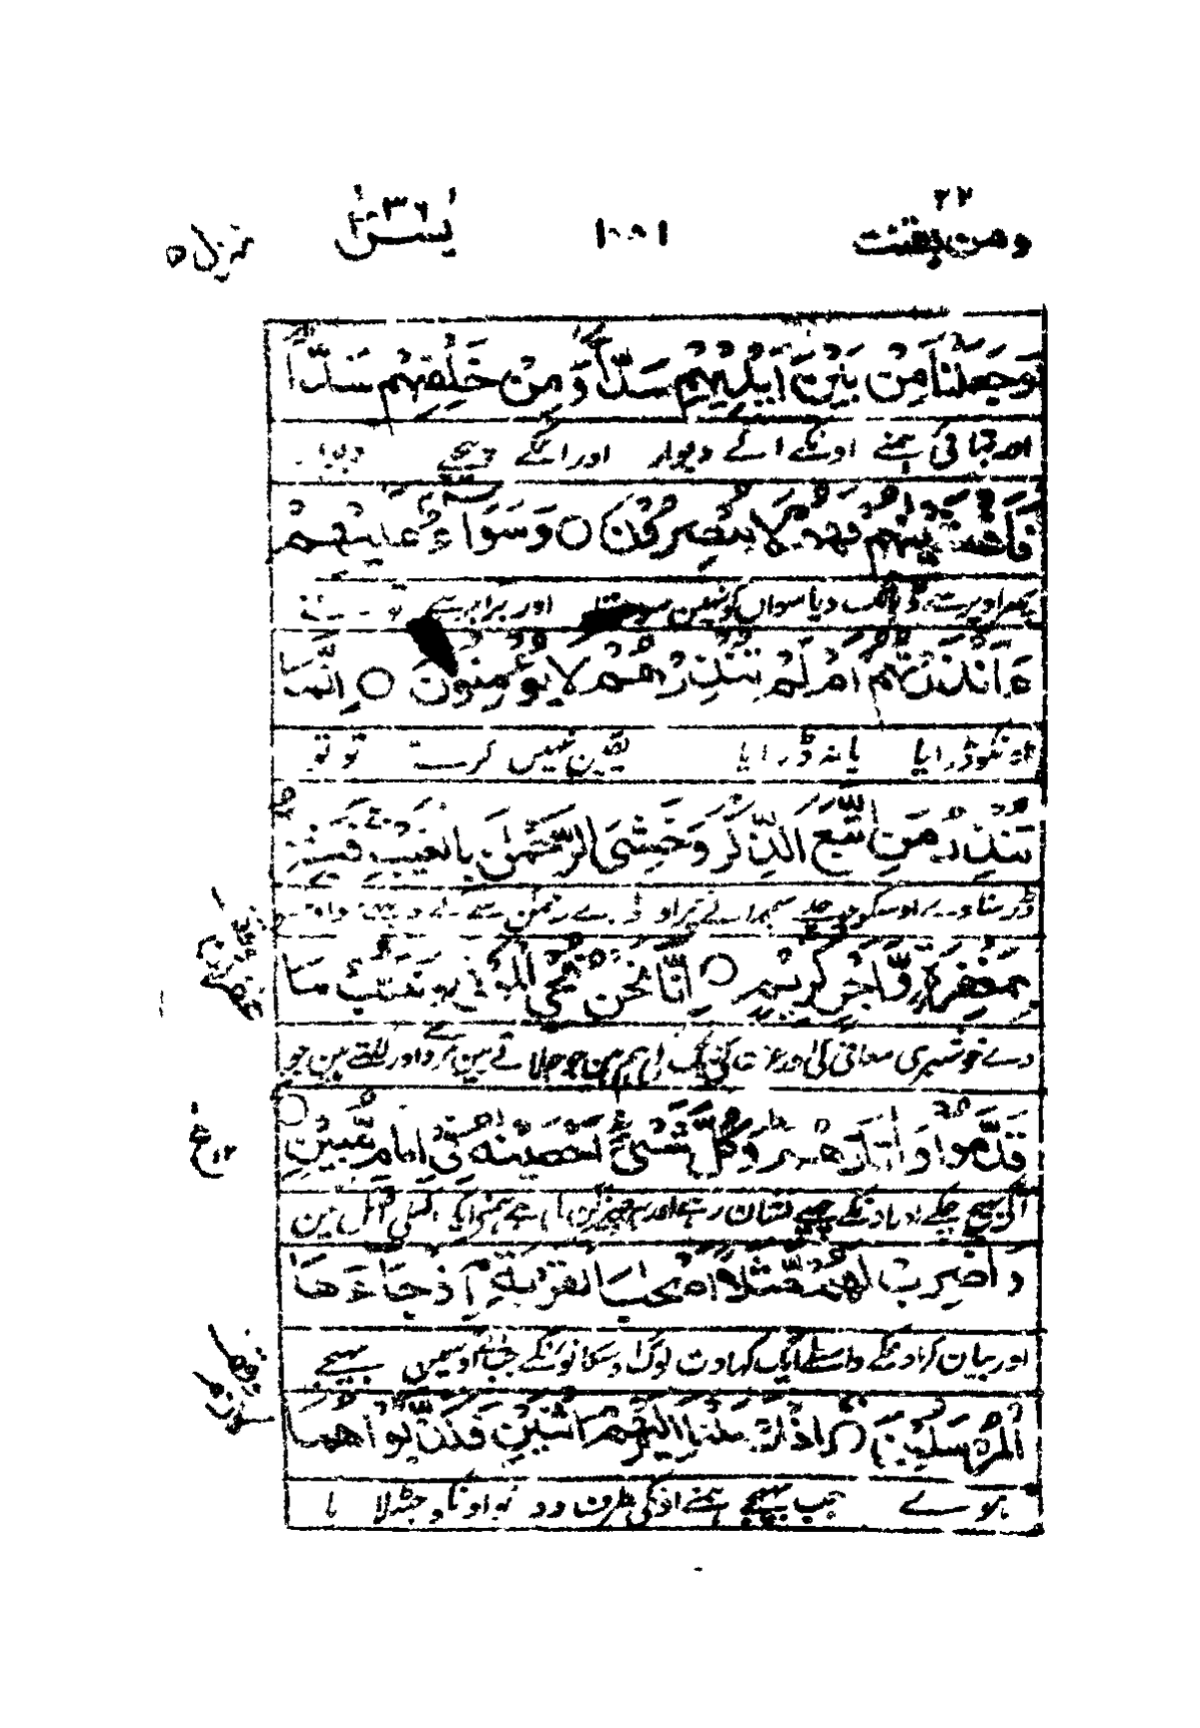 ومن یقنت ۲۲
۱۰۵۱
یٰسٓ ۳۶
منزل ۵
وَجَعَلْنَا مِنْ بَیْنِ اَیْدِیْهِمْ سَدًّا وَّمِنْ خَلْفِهِمْ سَدًّا
اور بنائی ہمنے اونکے آگے دیوار اور انکے پیچھے دیوار
فَاَغْشَیْنٰهُمْ فَهُمْ لَا یُبْصِرُوْنَ ○ وَسَوَآءٌ عَلَیْهِمْ
پھر اوپر سے ڈھانک دیا سو اں کو نہیں سوجھتا اور برابر ہے
ءَاَنْذَرْتَهُمْ اَمْ لَمْ تُنْذِرْهُمْ لَا یُؤْمِنُوْنَ ○ اِنَّمَا
اونکو ڈرایا یا نہ ڈرایا یقین نہیں کرتے تو تو
تُنْذِرُ مَنِ اتَّبَعَ الذِّكْرَ وَخَشِیَ الرَّحْمٰنَ بِالْغَیْبِ فَبَشِّرْهُ
ڈر سناوے اوسکو جو چلے سمجھائے پر اور ڈرے رحمٰن سے
بِمَغْفِرَةٍ وَّاَجْرٍ كَرِیْمٍ ○ اِنَّا نَحْنُ نُحْیِ الْمَوْتٰی وَنَكْتُبُ مَا
دے خوشخبری معافی کی اور عزت کی نیگ ہم ہین جو جلاتے ہین مردے اور لکھتے ہین جو
قَدَّمُوْا وَاٰثَارَهُمْ وَكُلَّ شَیْءٍ اَحْصَیْنٰهُ فِیْ اِمَامٍ مُّبِیْنٍ ○
آگے بھیج چکے اور اونکے پیچھے نشان رہے اور ہر چیز گن لی ہے ہمنے ایک کھلی اصل مین
وَاضْرِبْ لَهُمْ مَّثَلًا اَصْحٰبَ الْقَرْیَةِ اِذْ جَآءَهَا
اور بیان کر اونکے واسطے ایک کہاوت لوگ اوس گانوں کے جب آئے اوسمیں بھیجے
الْمُرْسَلُوْنَ ○ اِذْ اَرْسَلْنَا اِلَیْهِمُ اثْنَیْنِ فَكَذَّبُوْهُمَا
ہوے جب بھیجے ہمنے اونکی طرف دو تو اونکو جھٹلایا